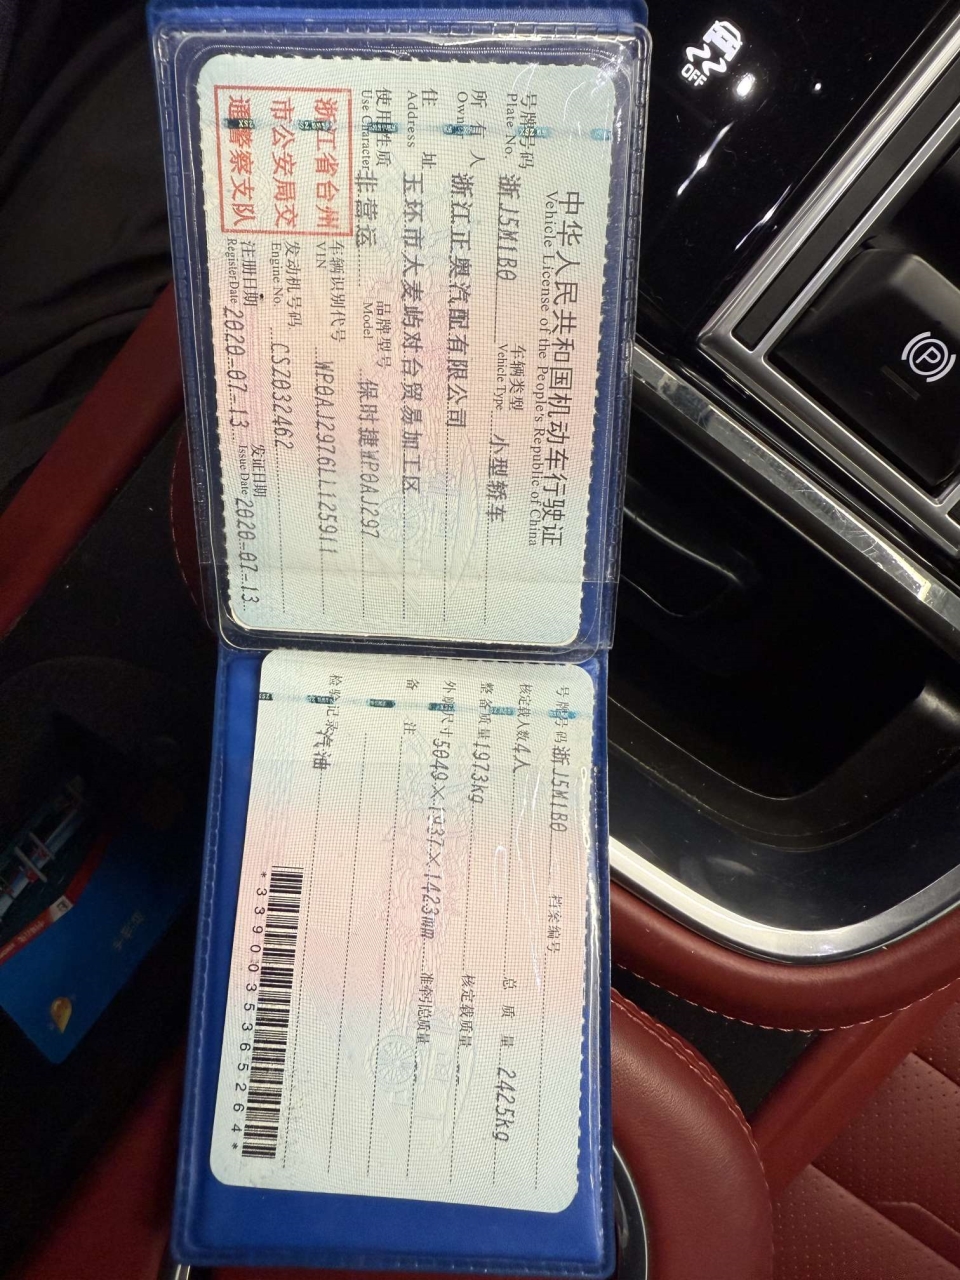 中华人民共和国机动车行驶证
Vehicle License of the People's Republic of China
号牌号码 浙J5M1B0 车辆类型 小型轿车
Plate No. Vehicle Type
所有人 浙江正奥汽配有限公司
Owner
住址 玉环市大麦屿对台贸易加工区
Address
使用性质 非营运 品牌型号 保时捷WP0AJ297
Use Character Model
浙江省台州
市公安局交
通警察支队
车辆识别代号 WP0AJ2976LL125911
VIN
发动机号码 CSZ032462
Engine No.
注册日期 2020-07-13 发证日期 2020-07-13
Register Date Issue Date
号牌号码 浙J5M1B0 档案编号
核定载人数 4人 总质量 2425kg
整备质量 1973kg 核定载质量
外廓尺寸 5049×1937×1423mm 准牵引总质量
备注
检验记录 汽油
*3390035365264*
OFF
P